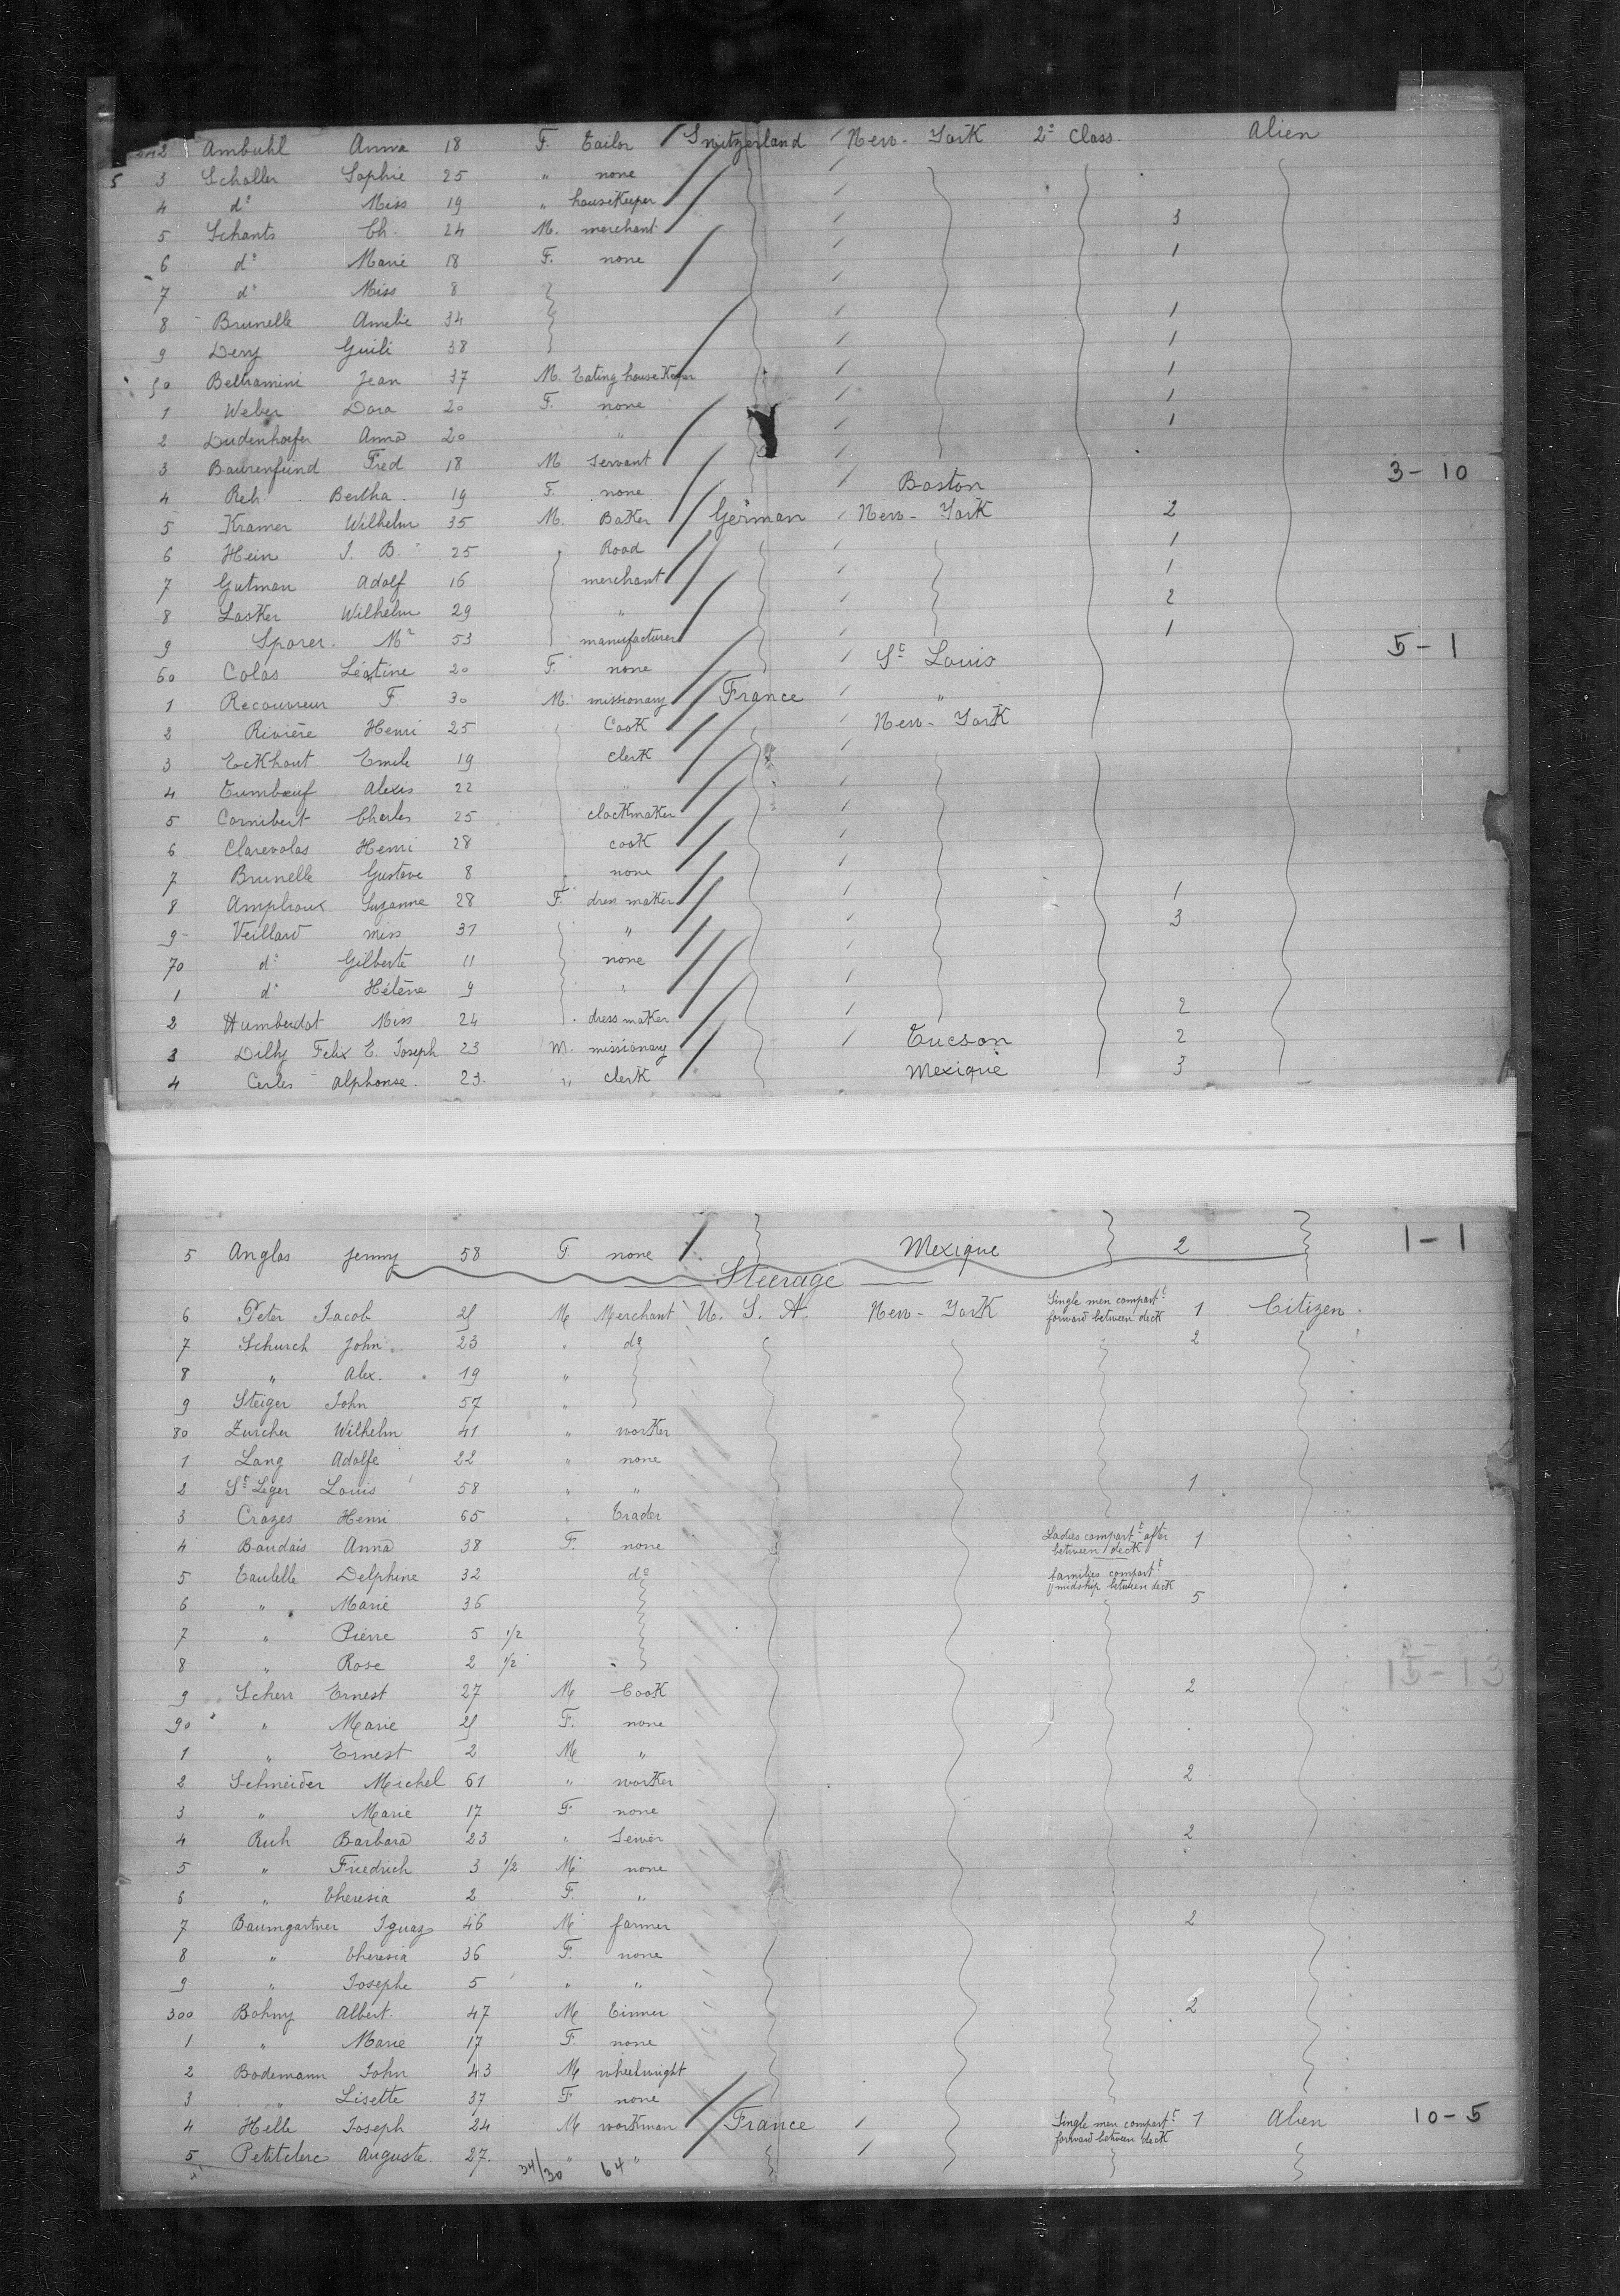 242 Ambuhl Anna 18 F. Tailor Switzerland New-York 2ᵉ Class. Alien
5 3 Scholler Sophie 25 " none
4 dᵒ Miss 19 " houseKeeper
5 Schants Ch. 24 M. merchant 3
6 dᵒ Marie 18 F. none 1
7 dᵒ Miss 8
8 Brunelle Amelie 34 1
9 Deny 38 1
50 Beltramini Jean 37 M. Eating house Keeper 1
1 Weber Dora 20 F. none 1
2 Dudenhoefer Anna 20 " 1
3 Baurenfeind Fred 18 M servant
4 Reh Bertha 19 F. none Boston 3-10
5 Kramer Wilhelm 35 M. Baker German New-York 2
6 Hein J. B. 25 Road 1
7 Gutman Adolf 16 merchant 1
8 Lasker Wilhelm 29 " 2
9 Sporer Mʳ 53 manufacturer 1
60 Colas Léontine 20 F. none Sᵗ Louis 5-1
1 Recouvreur F. 30 M. missionary France "
2 Rivière Henri 25 Cook New-York
3 Eckhout Emile 19 clerk
4 Tumbœuf Alexis 22 "
5 Cornibert Charles 25 clockmaker
6 Clarevolas Henri 28 cook
7 Brunelle Gustave 8 none
8 Amphoux Suzanne 28 F. dress maker 1
9 Veillard miss 37 " 3
70 dᵒ Gilberte 11 none
1 dᵒ Hélène 9 "
2 Humberdot Miss 24 dress maker 2
3 Dilly Felix E. Joseph 23 M. missionary Tucson 2
4 Cerles Alphonse. 23. " clerk Mexique 3
5 Anglas Jenny 58 F. none Mexique 2 1-1
Steerage
6 Peter Jacob M Merchant U. S. A. New-York Single men compartᵗ forward between deck 1 Citizen.
7 Schurch John 23 " dᵒ 2
8 " Alex. 19 "
9 Steiger John 57 "
80 Zurcher Wilhelm 41 " worker
1 Lang Adolfe 22 " none
2 Sᵗ Leger Louis 58 " " 1
3 Crozes Henri 65 " Trader
4 Baudais Anna 38 F. none Ladies compartᵗ after between deck 1
5 Taulelle Delphine 32 dᵒ families compartᵗ midship between deck
6 " Marie 36 5
7 " Pierre 5 1/2
8 " Rose 2 1/2 15-13
9 Scherr Ernest 27 M Cook 2
90 " Marie F. none
1 " Ernest 2 M "
2 Schneider Michel 61 " worker 2
3 " Marie 17 F. none
4 Ruh Barbara 23 " Sewer 2
5 " Friedrich 3 1/2 M none
6 " Theresia 2 F. "
7 Baumgartner Ignaz 46 M farmer 2
8 " Theresia 36 F. none
9 " Josephe 5 " "
300 Bohny Albert 47 M Tinner 2
1 " Marie 17 F. none
2 Bodemann John 43 M wheelwright
3 " Lisette 37 F none
4 Helle Joseph 24 M workman France Single men compartᵗ forward between deck 1 Alien 10-5
5 Petitclerc Auguste. 27. " "
34/30 64